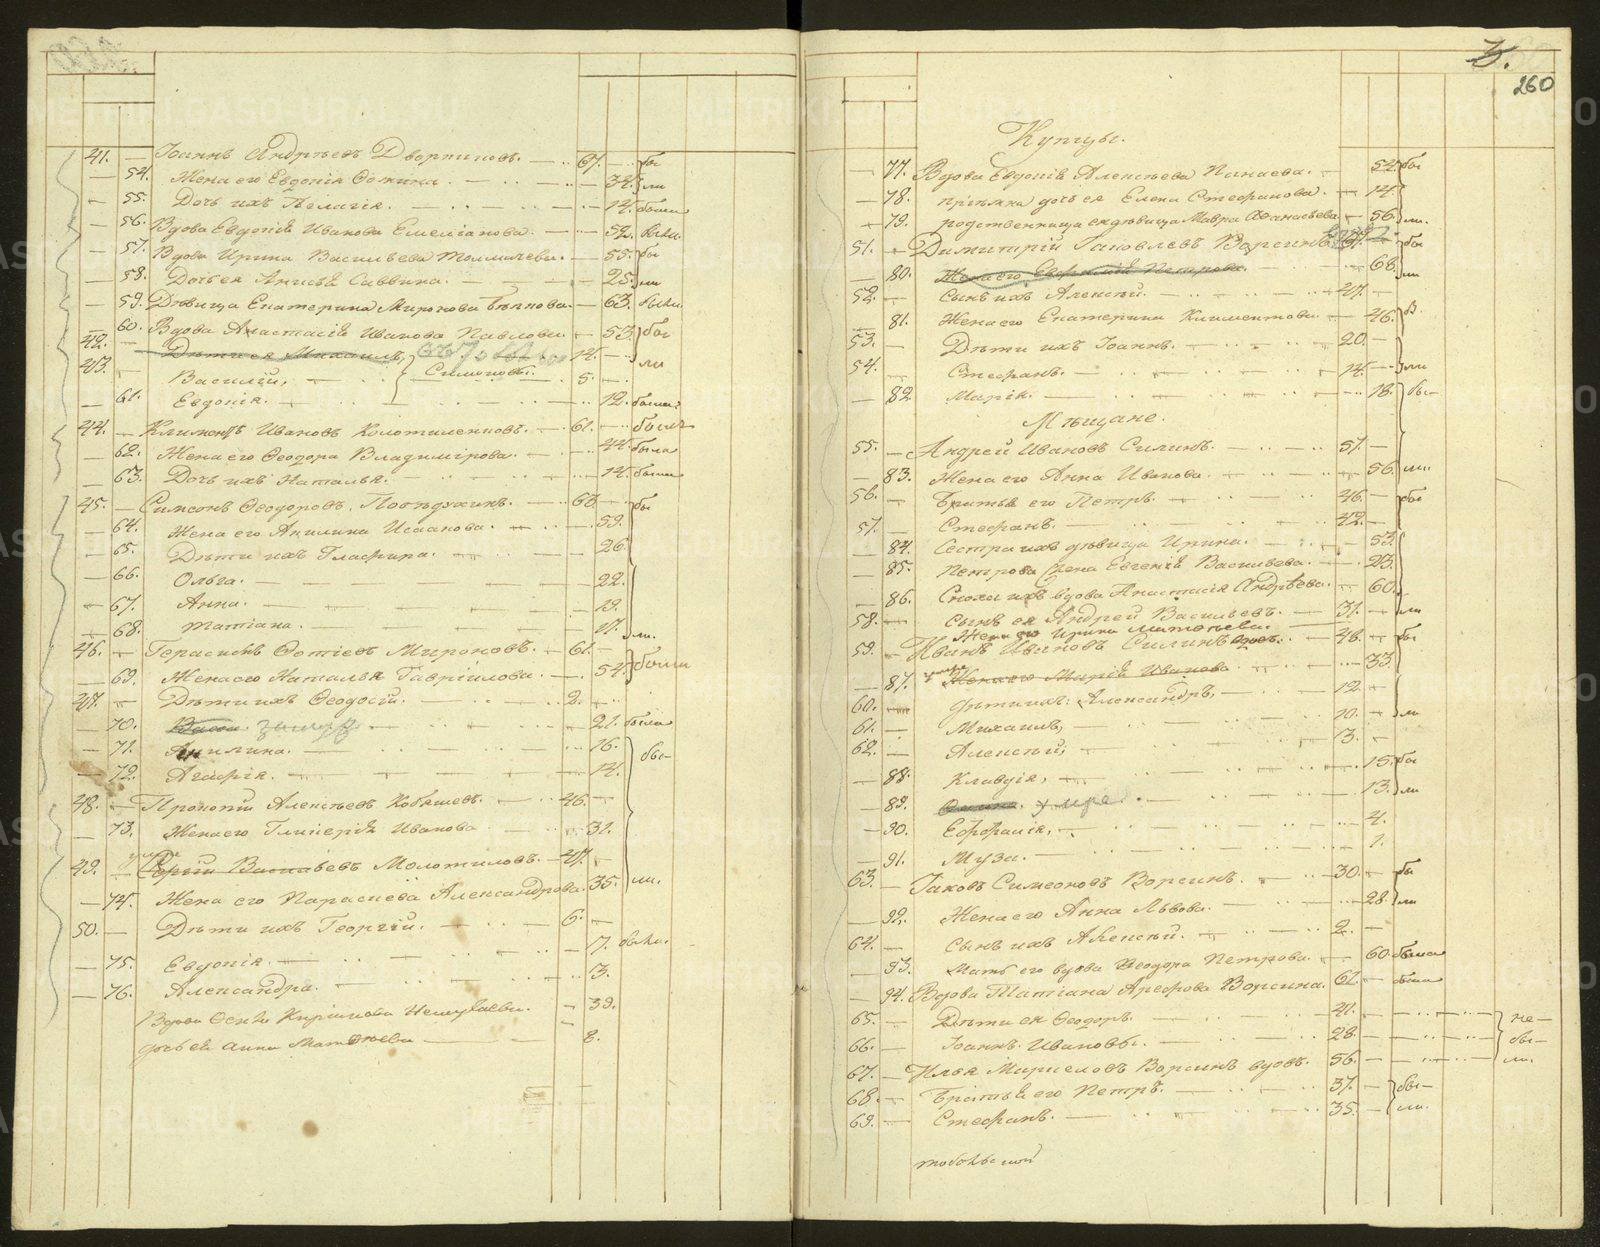 41. — Іоаннъ Андреевъ Дворниковъ. — 61. — бы
— 54. Жена его Евдокія Ѳомина. — 34. ли
— 55. Дочь ихъ Пелагія. — 14. была
— 56. Вдова Евдокія Иванова Емеліанова. — 52. были
— 57. Вдова Ирина Васильева Толмачева. — 55. бы
— 58. Дочь ея Анисья Саввина. — 25. ли
— 59. Дѣвица Екатерина Миронова — 63. были
— 60. Вдова Анастасія Иванова Павлова. — 53. бы
42. — Дѣти ея Михаилъ, 14. — ли
43. — Василій, Симоновы. 5. —
— 61. Евдокія. — 12. была
44. — Климентъ Ивановъ Колотиленковъ. — 61. — былъ
— 62. Жена его Ѳеодора Владимірова. — 44. была
— 63. Дочь ихъ Наталья. — 14. была
45. — Симеонъ Ѳеодоровъ — 63. — бы
— 64. Жена его Акилина Исаакова. — 59.
— 65. Дѣти ихъ Глафира. — 26.
— 66. Ольга. — 22.
— 67. Анна. — 19.
— 68. Татіана. — 17. ли.
46. — Герасимъ Ѳотіевъ Мироновъ. — 61. — были
— 69. Жена его Наталья Гавріилова. — 54.
47. — Дѣти ихъ Ѳеодосій. — 2. —
— 70. замуж — 21. была
— 71. Акилина. — 16. бы-
— 72. Агафія. — 14.
48. — Прокопій Алексѣевъ Кобяшевъ. — 46. —
— 73. Жена его Гликерія Иванова — 31.
умре
49. — Юрій Васильевъ Молотиловъ. — 47. —
— 74. Жена его Параскева Александрова. 35. ли.
50. — Дѣти ихъ Георгій. — 6. —
— 75. Евдокія. — 17. были.
— 76. Александра. — 3.
Вдова Кирилова — 39.
дочь ея Анна Матвѣева — 8.
260
Купцы.
— 77. Вдова Евдокія Алексѣева Пинаева. — 54. бы
— 78. пріемна дочь ея Елена Стефанова. — 14.
— 79. родственница ея дѣвица Мавра Аѳанасьева — 56. ли.
51. — Димитрій Іаковлевъ Ворсинъ — бы
— 80. Жена его Евфимія Петрова. — 68. ли
52. — Сынъ ихъ Алексѣй. — 47. —
— 81. Жена его Екатерина Климентова — 46. б
53. — Дѣти ихъ Іоаннъ. — 20. —
54. — Стефанъ. — 14. — ли
— 82. Марія. — 18. бы-
Мѣщане.
55. — Андрей Ивановъ Силинъ. — 51. —
— 83. Жена его Анна Иванова. — 56. ли.
56. — Братья его Петръ. — 46. — бы
57. — Стефанъ. — 42. —
— 84. Сестра ихъ дѣвица Ирина. — 53.
— 85. Петрова жена Евгенія Васильева. — 23.
— 86. Сноха ихъ вдова Анастасія Андреева. — 60.
58. — Сынъ ея Андрей Васильевъ. — 31. — ли
Жена его Ирина Матвѣева.
59. — Иванъ Ивановъ Силинъ вдов. — 48. — бы
— 87. умре Жена его Марія Иванова — 33.
60. — Дѣти ихъ: Александръ, — 12. —
61. — Михаилъ, — 10. — ли
62. — Алексѣй, — 3. —
— 88. Клавдія, — 15. бы
— 89. умре. — 13. ли
— 90. Евфросинія, — 4.
— 91. Муза. — 1.
63. — Іаковъ Симеоновъ Ворсинъ. — 30. — бы
— 92. Жена его Анна Львова. — 28. ли
64. — Сынъ ихъ Алексѣй. — 2. —
— 93. Мать его вдова Ѳеодора Петрова. — 60. была
— 94. Вдова Татіана Арефова Ворсина. 62. — была
65. — Дѣти ея Ѳеодоръ. — 41. — не-
66. — Іоаннъ Ивановы. — 28. — бы-
67. — Илья Маркеловъ Ворсинъ вдовъ. 56. — ли.
68. — Братья его Петръ. — 37. — бы-
69. — Стефанъ. — 35. — ли.
тобольской